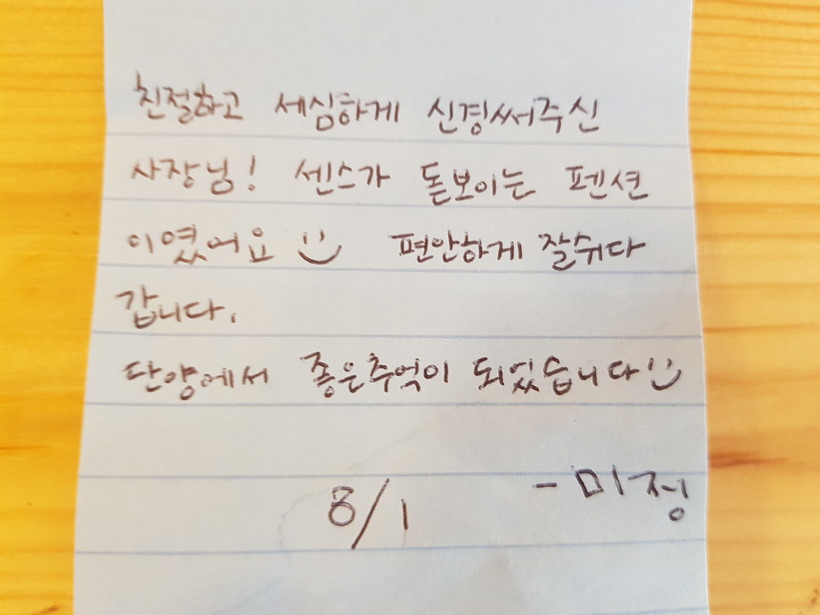 친절하고 세심하게 신경써주신
사장님! 센스가 돋보이는 펜션
이였어요 :) 편안하게 잘쉬다
갑니다.
단양에서 좋은추억이 되었습니다 :)
8/1 - 미정